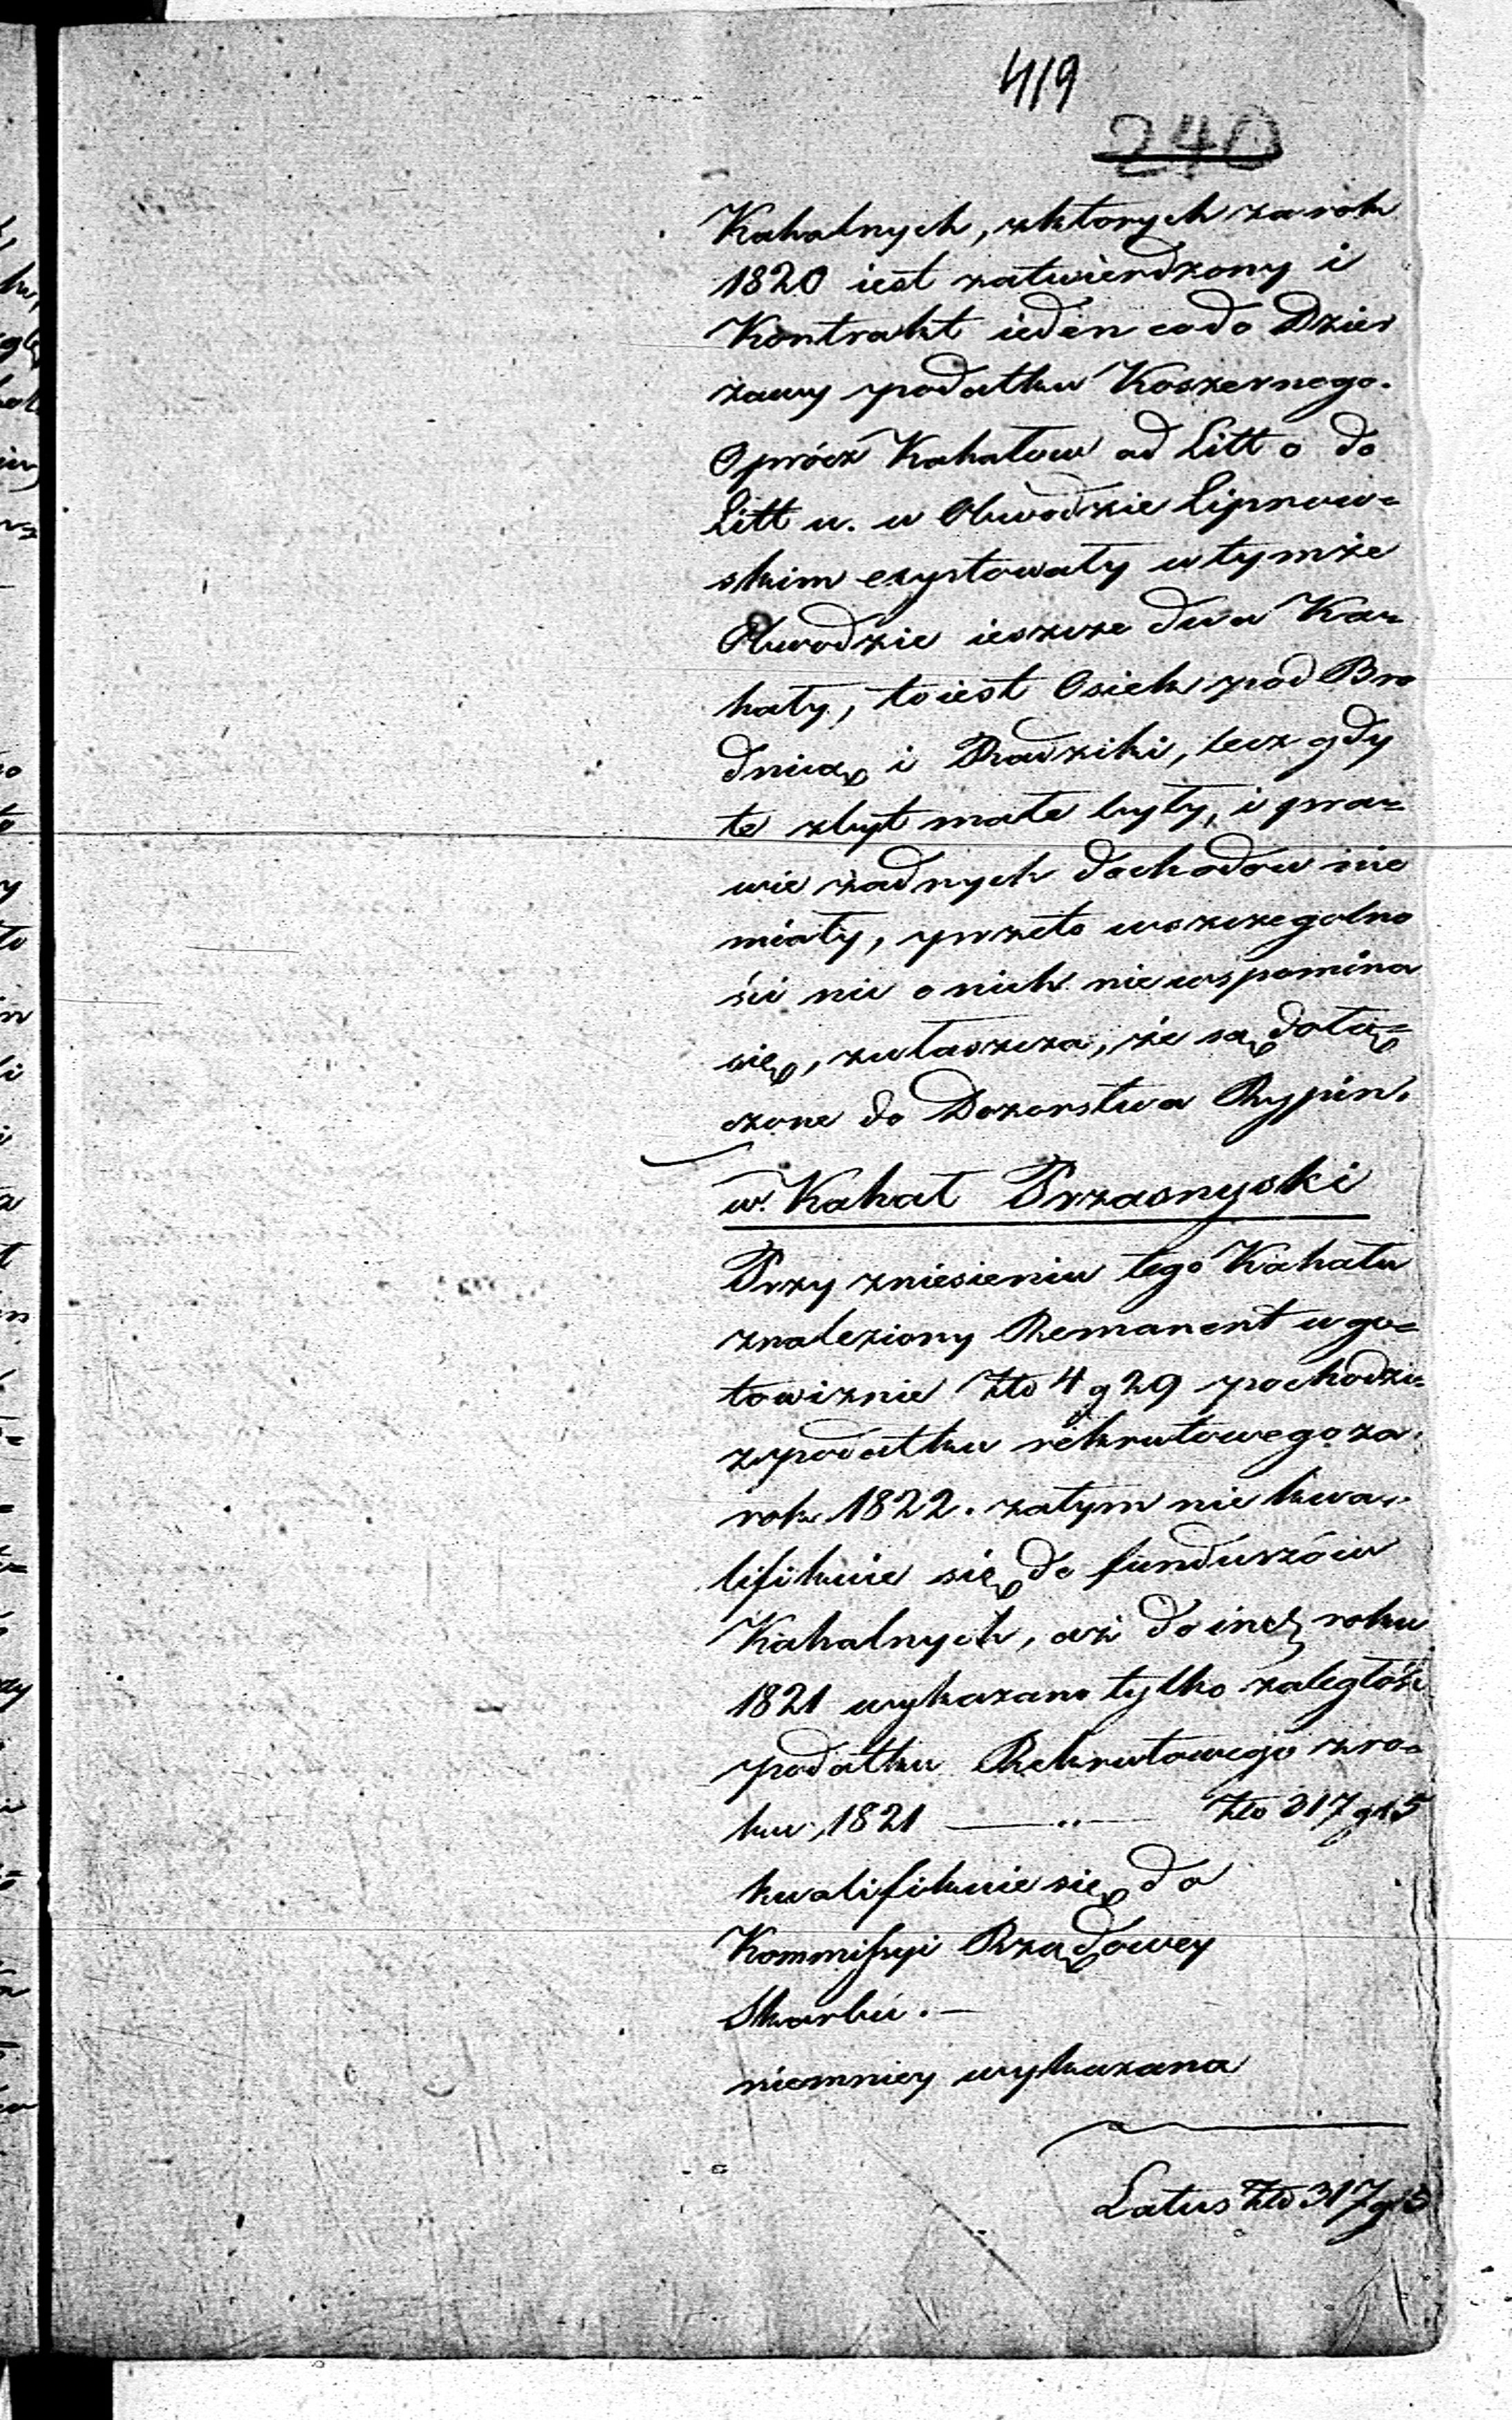 419
240
Kahalnych, z ktorych za rok
1820 iest zatwierdzony i
Kontrakt ieden co do Dzier
żawy podatku Koszernego.
Oprócz Kahałow od Litt o do
Litt u. w Obwodzie Lipnow=
skim exystowały w tymże
Obwodzie ieszcze dwa Ka=
hały, to iest Osiek pod Bro
dnicą i Radziki, lecz gdy
te zbyt małe były, i pra=
wie żadnych dochodow nie
miały, przeto wszczegolno
ści nic o nich nie wspomina
się, zwłaszcza, że są dołą=
czone do Dozorstwa Rypin.
w. Kahał Przasnyski
Przy zniesieniu tego Kahału
znaleziony Remanent w go=
towiznie Złt 4 g 29 pochodzi
z podatku rekrutowego za
rok 1822. zatym nie kwa=
lifikuie się do funduszów
Kahalnych, aż do incl roku
1821 wykazano tylko zaległość
podatku Rekrutowego z ro=
ku 1821 — „ — Złt 317 g 15
kwalifikuie się do
Kommissyi Rządowey
Skarbu. —
niemniey wykazana
Latus Złt 317 g 15